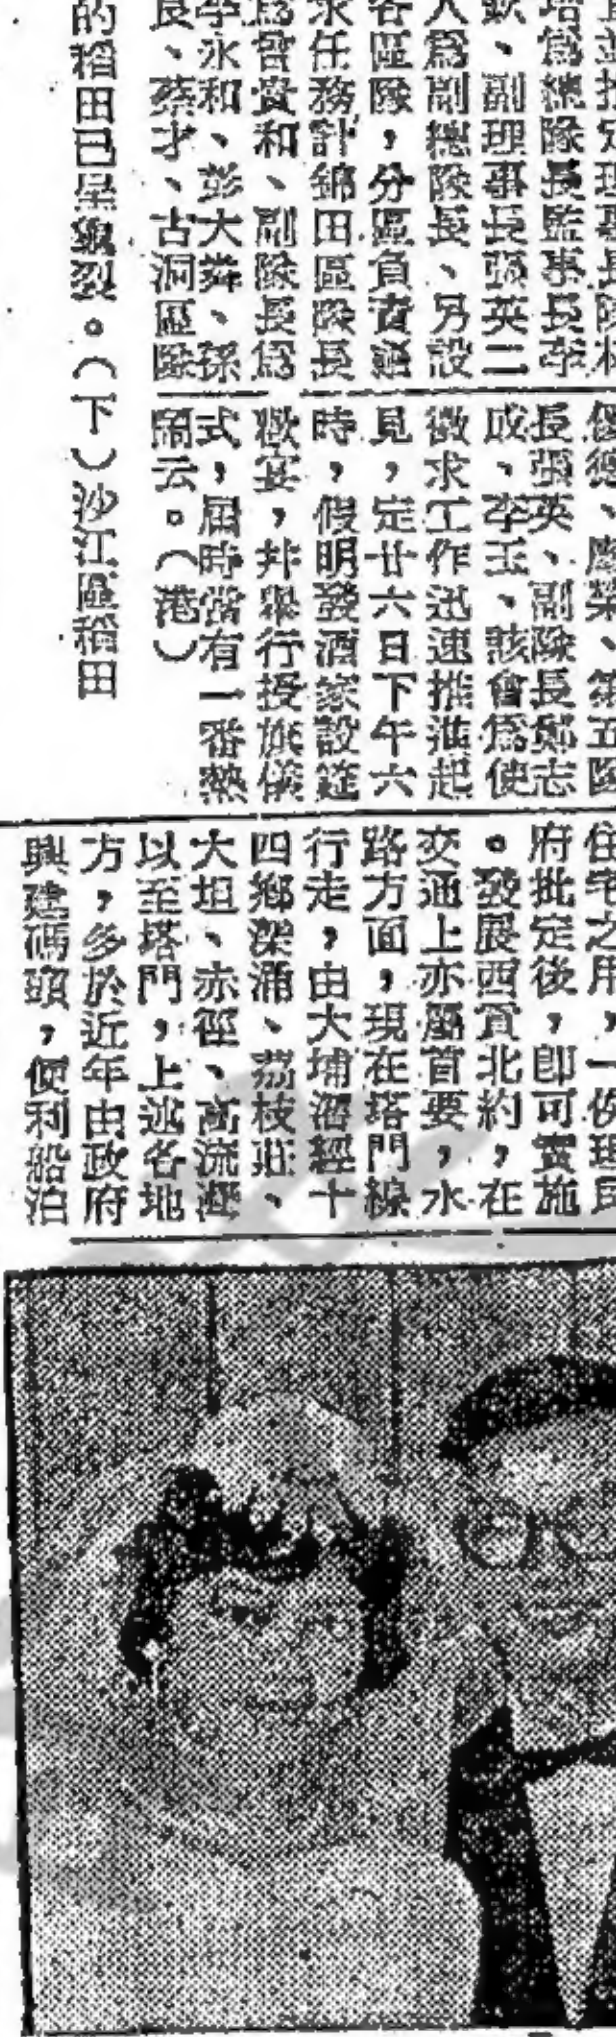 培爲總隊長監事長李
欽、副理事長張英二
人爲副總隊長、另設
各區隊，分區負責徵
求任務計錦田區隊長
爲曾貴和、副隊長爲
李永和、彭大、孫
良、蔡才、古洞區隊
長張英、副隊長鄭志
成、李玉、該會爲使
徵求工作迅速推進起
見，定廿六日下午六
時，假明發酒家設筵
歡宴，并舉行授旗儀
式，屆時當有一番熱
鬧云。（港）
的稻田已呈龜裂。（下）沙江區稻田
住宅之用，一俟理民
府批定後，卽可實施
。發展西貢北約，在
交通上亦屬首要，水
路方面，現在塔門線
行走，由大埔滘經十
四鄉深涌、荔枝莊、
大坦、赤徑、高流灣
以至塔門，上述各地
方，多於近年由政府
興建碼頭，便利船泊